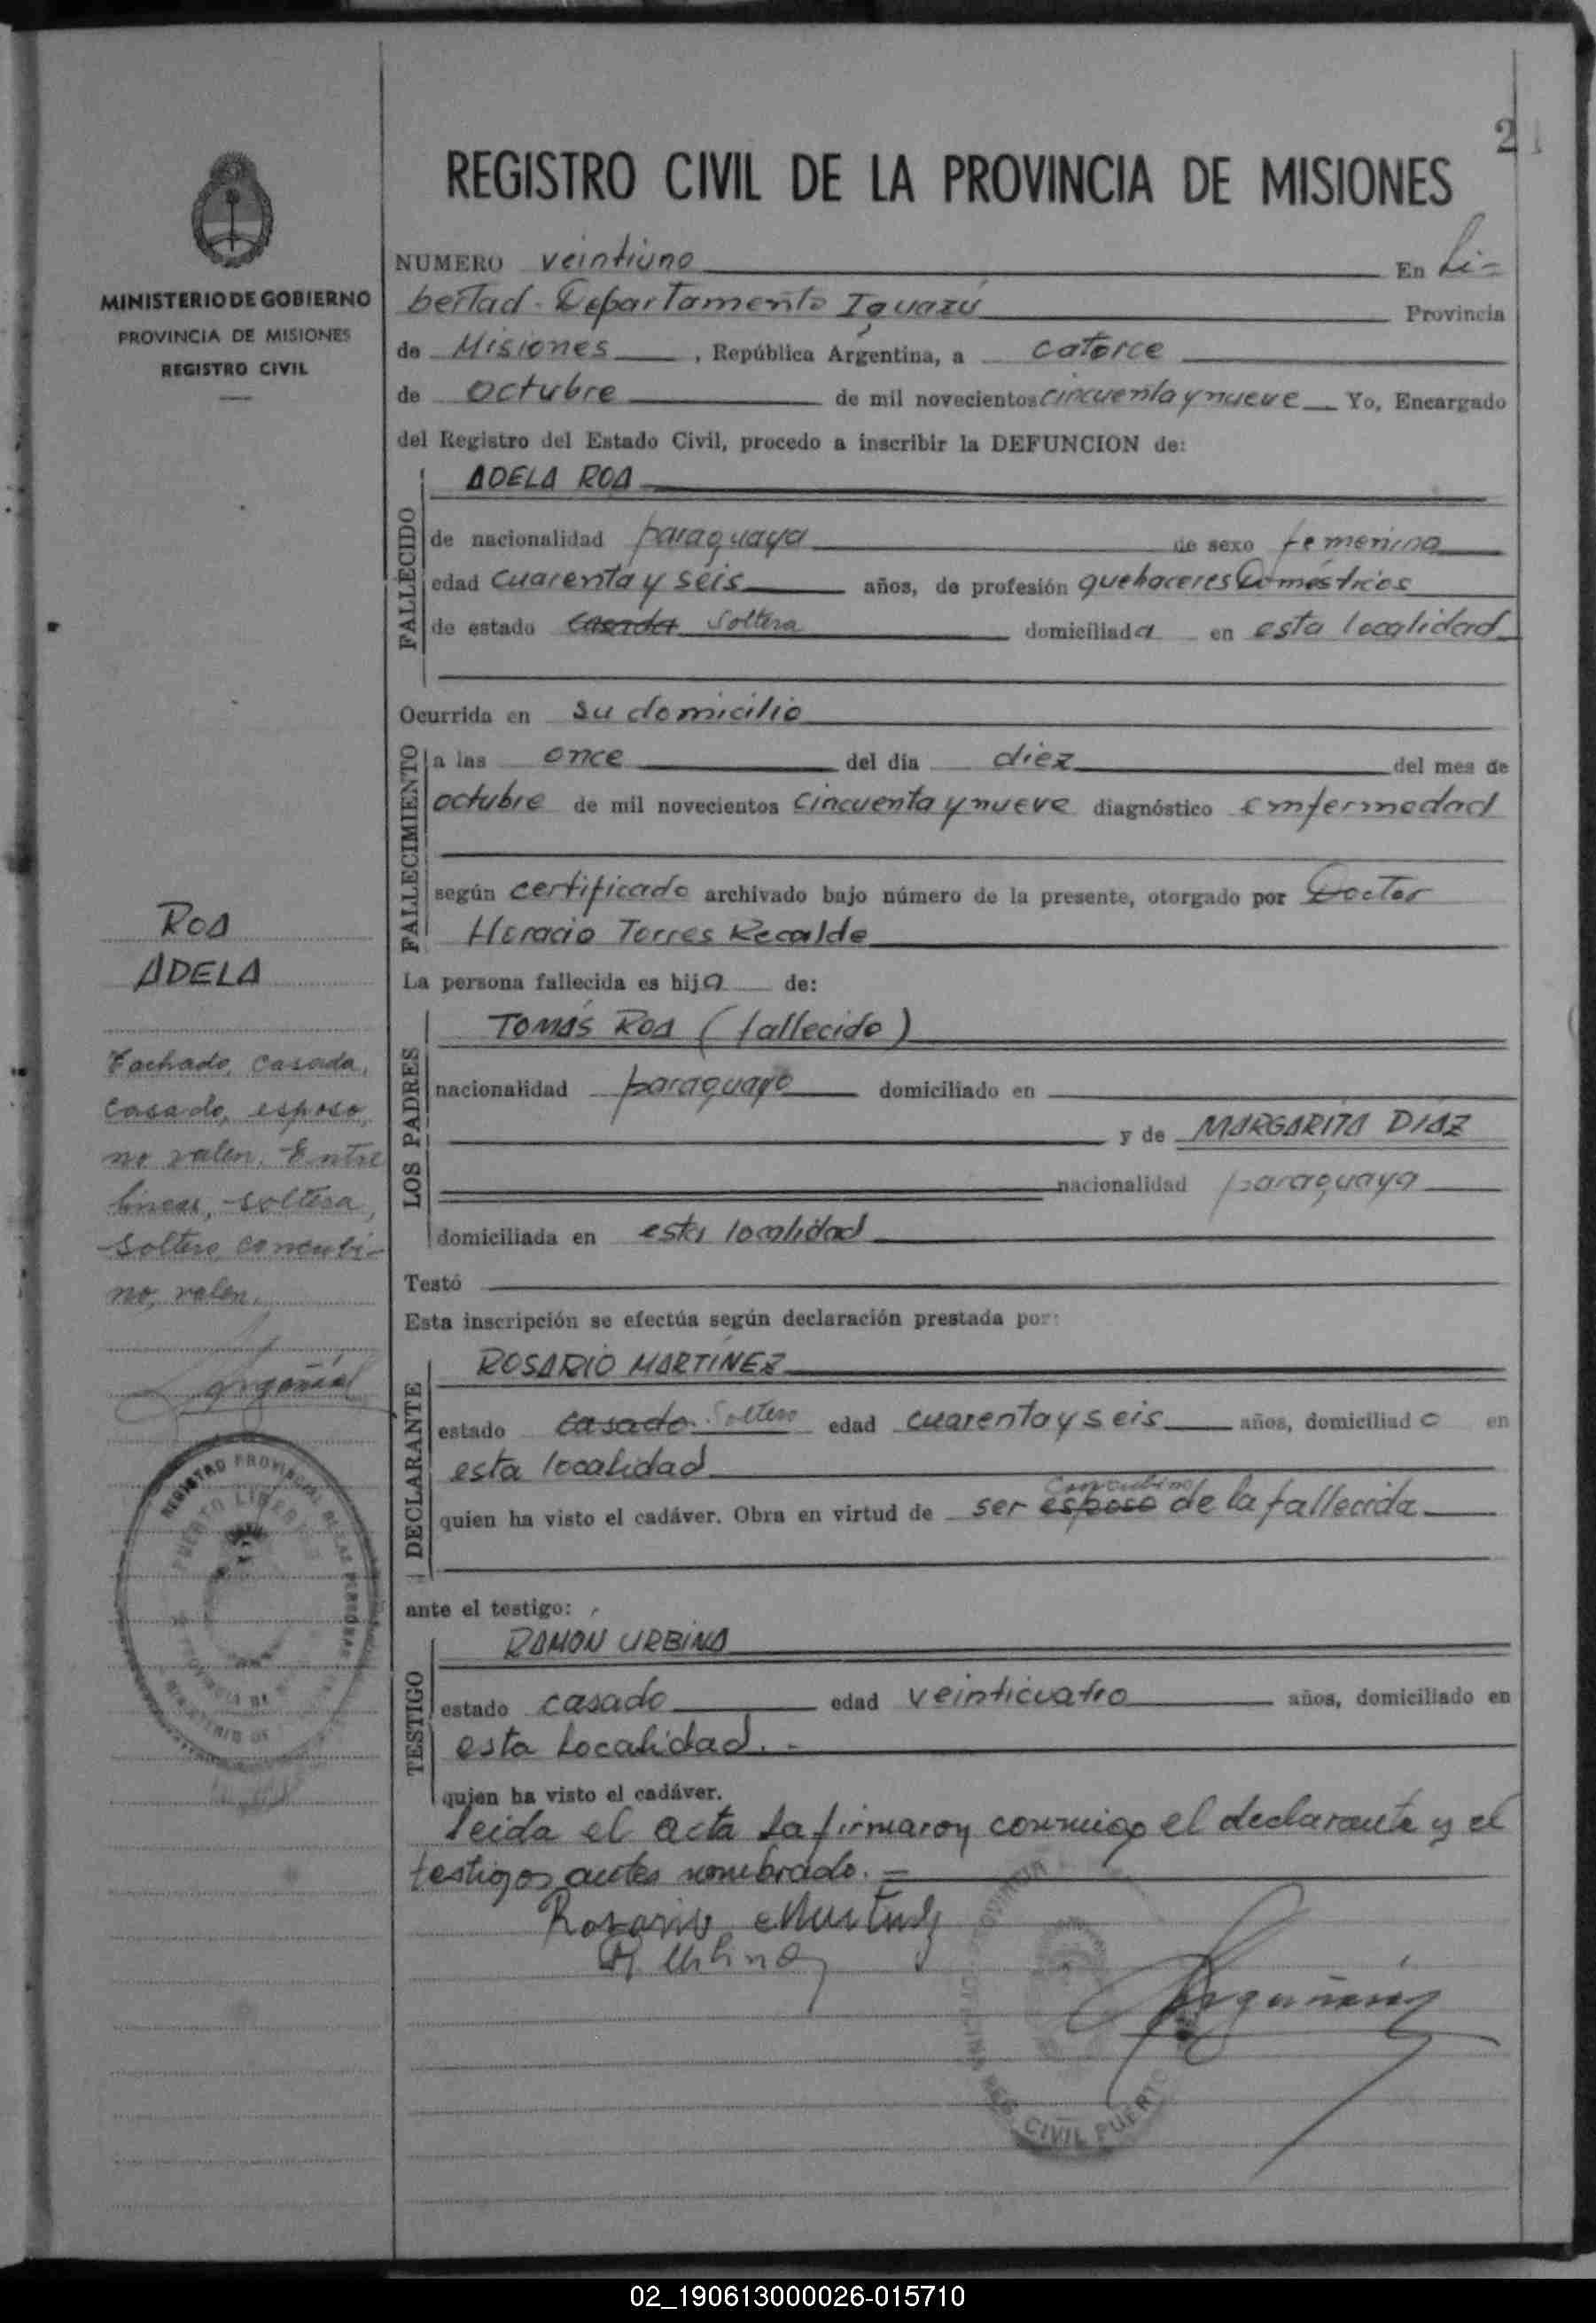 21
REGISTRO CIVIL DE LA PROVINCIA DE MISIONES
MINISTERIO DE GOBIERNO
PROVINCIA DE MISIONES
REGISTRO CIVIL
NUMERO veintiuno En Li-
bertad - Departamento Iguazú Provincia
de Misiones, República Argentina, a catorce
de octubre de mil novecientos cincuenta y nueve Yo, Encargado
del Registro del Estado Civil, procedo a inscribir la DEFUNCION de:
FALLECIDO
ADELA ROA
de nacionalidad paraguaya de sexo femenino
edad cuarenta y seis años, de profesión quehaceres domésticos
de estado casada soltera domiciliada en esta localidad
Ocurrida en su domicilio
FALLECIMIENTO
a las once del día diez del mes de
octubre de mil novecientos cincuenta y nueve diagnóstico enfermedad
según certificado archivado bajo número de la presente, otorgado por Doctor
Horacio Torres Recalde
La persona fallecida es hija de:
LOS PADRES
TOMÁS ROA (fallecido)
nacionalidad paraguayo domiciliado en
y de MARGARITA DIAZ
nacionalidad paraguaya
domiciliada en esta localidad
Testó
Esta inscripción se efectúa según declaración prestada por:
DECLARANTE
ROSARIO MARTINEZ
estado casado soltero edad cuarenta y seis años, domiciliado en
esta localidad
concubino
quien ha visto el cadáver. Obra en virtud de ser esposo de la fallecida
ante el testigo:
TESTIGO
RAMON URBINA
estado casado edad veinticuatro años, domiciliado en
esta Localidad.-
quien ha visto el cadáver.
Leida el acta la firmaron conmigo el declarante y el
testigos antes nombrado.=
Rosario Martinez
R. Urbina
CIVIL PUERTO
ROA
ADELA
Tachado, casada,
casado, esposo,
no valen. Entre
lineas, soltera,
soltero, concubi-
no, valen.
REGISTRO PROVINCIAL DE LAS PERSONAS
PUERTO LIBERTAD
02_190613000026-015710